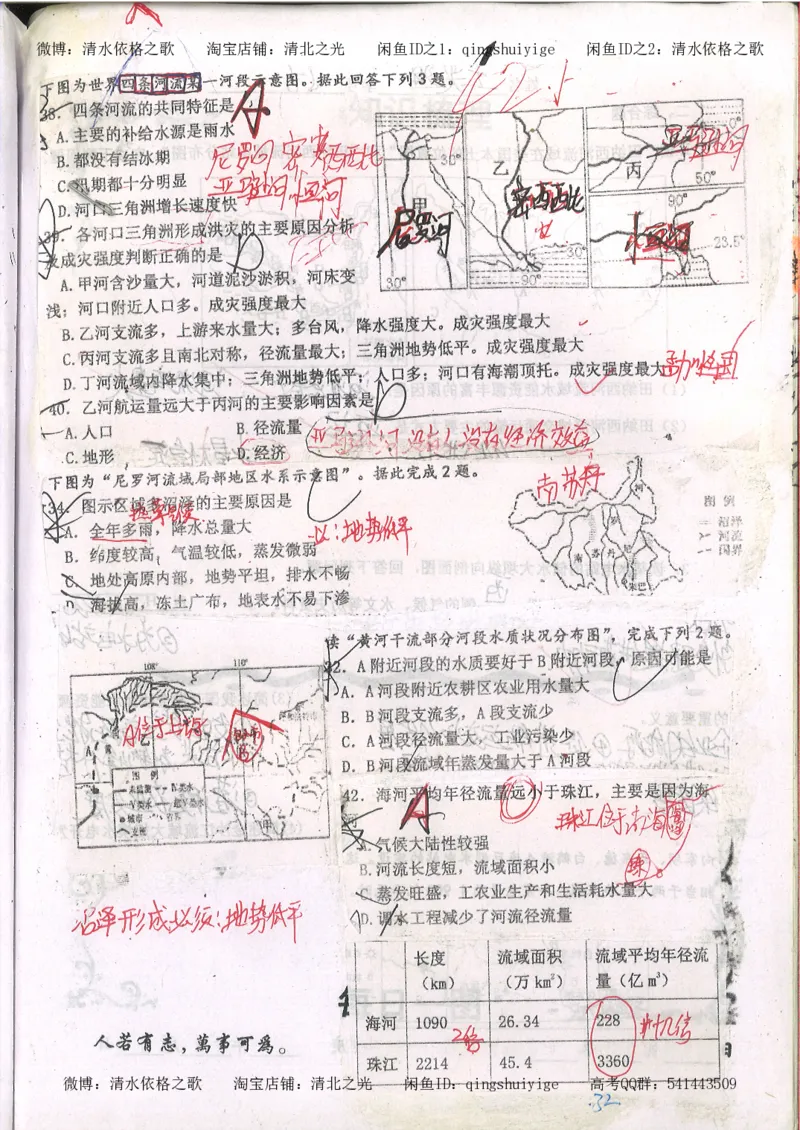 微博：清水依格之歌 淘宝店铺：清北之光 闲鱼ID之1：qingshuiyige 闲鱼ID之2：清水依格之歌
下图为世界四条河流某一河段示意图。据此回答下列3题。
38．四条河流的共同特征是 A
A.主要的补给水源是雨水
B.都没有结冰期
C.汛期都十分明显
D.河口三角洲增长速度快
尼罗河 密西西比
亚马孙河 恒河
甲
尼罗河
30°
30°
乙
密西西比
90°
30°
丙
亚马孙河
0°
50°
90°
23.5°
39．各河口三角洲形成洪灾的主要原因分析
及成灾强度判断正确的是 D
A.甲河含沙量大，河道泥沙淤积，河床变
浅；河口附近人口多。成灾强度最大
B.乙河支流多，上游来水量大；多台风，降水强度大。成灾强度最大
C.丙河支流多且南北对称，径流量最大；三角洲地势低平。成灾强度最大
D.丁河流域内降水集中；三角洲地势低平；人口多；河口有海潮顶托。成灾强度最大
孟加拉国
40．乙河航运量远大于丙河的主要影响因素是 D
A.人口 B.径流量
C.地形 D.经济
下图为“尼罗河流域局部地区水系示意图”。据此完成2题。
34．图示区域多沼泽的主要原因是
热带草原
A．全年多雨，降水总量大
B．纬度较高，气温较低，蒸发微弱
C．地处高原内部，地势平坦，排水不畅
D．海拔高，冻土广布，地表水不易下渗
必：地势低平
南苏丹
图例
沼泽
河流
国界
南苏丹
朱巴
读“黄河干流部分河段水质状况分布图”，完成下列2题。
32．A附近河段的水质要好于B附近河段，原因可能是
A．A河段附近农耕区农业用水量大
B．B河段支流多，A段支流少
C．A河段径流量大，工业污染少
D．B河段流域年蒸发量大于A河段
108° 110°
A位于上游
图例
未监测 Ⅳ类水
Ⅴ类水 超Ⅴ类水
城市 省界
支流
42．海河平均年径流量远小于珠江，主要是因为海
河 A
珠江位于南方
A.气候大陆性较强
B.河流长度短，流域面积小
C.蒸发旺盛，工农业生产和生活耗水量大
D.调水工程减少了河流径流量
沼泽形成必须：地势低平
长度（km） 流域面积（万km²） 流域平均年径流量（亿m³）
海河 1090 26.34 228
2倍 十几倍
珠江 2214 45.4 3360
人若有志，萬事可為。
微博：清水依格之歌 淘宝店铺：清北之光 闲鱼ID：qingshuiyige 高考QQ群：541443509
32